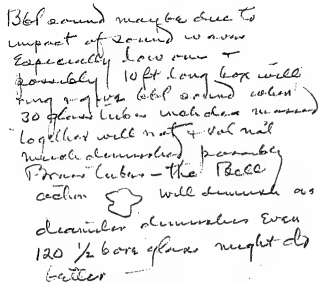 Bbl sound may be due to
impact of sound waves
Especially low ones +
possibly 10 ft long box will
ring & give bbl sound when
30 glass tubes inch dia massed
together will not & vol not
much diminished possibly
tubes — the Bell
action will diminish as
diameter diminishes Even
120 1/2 bore glass might do
better —